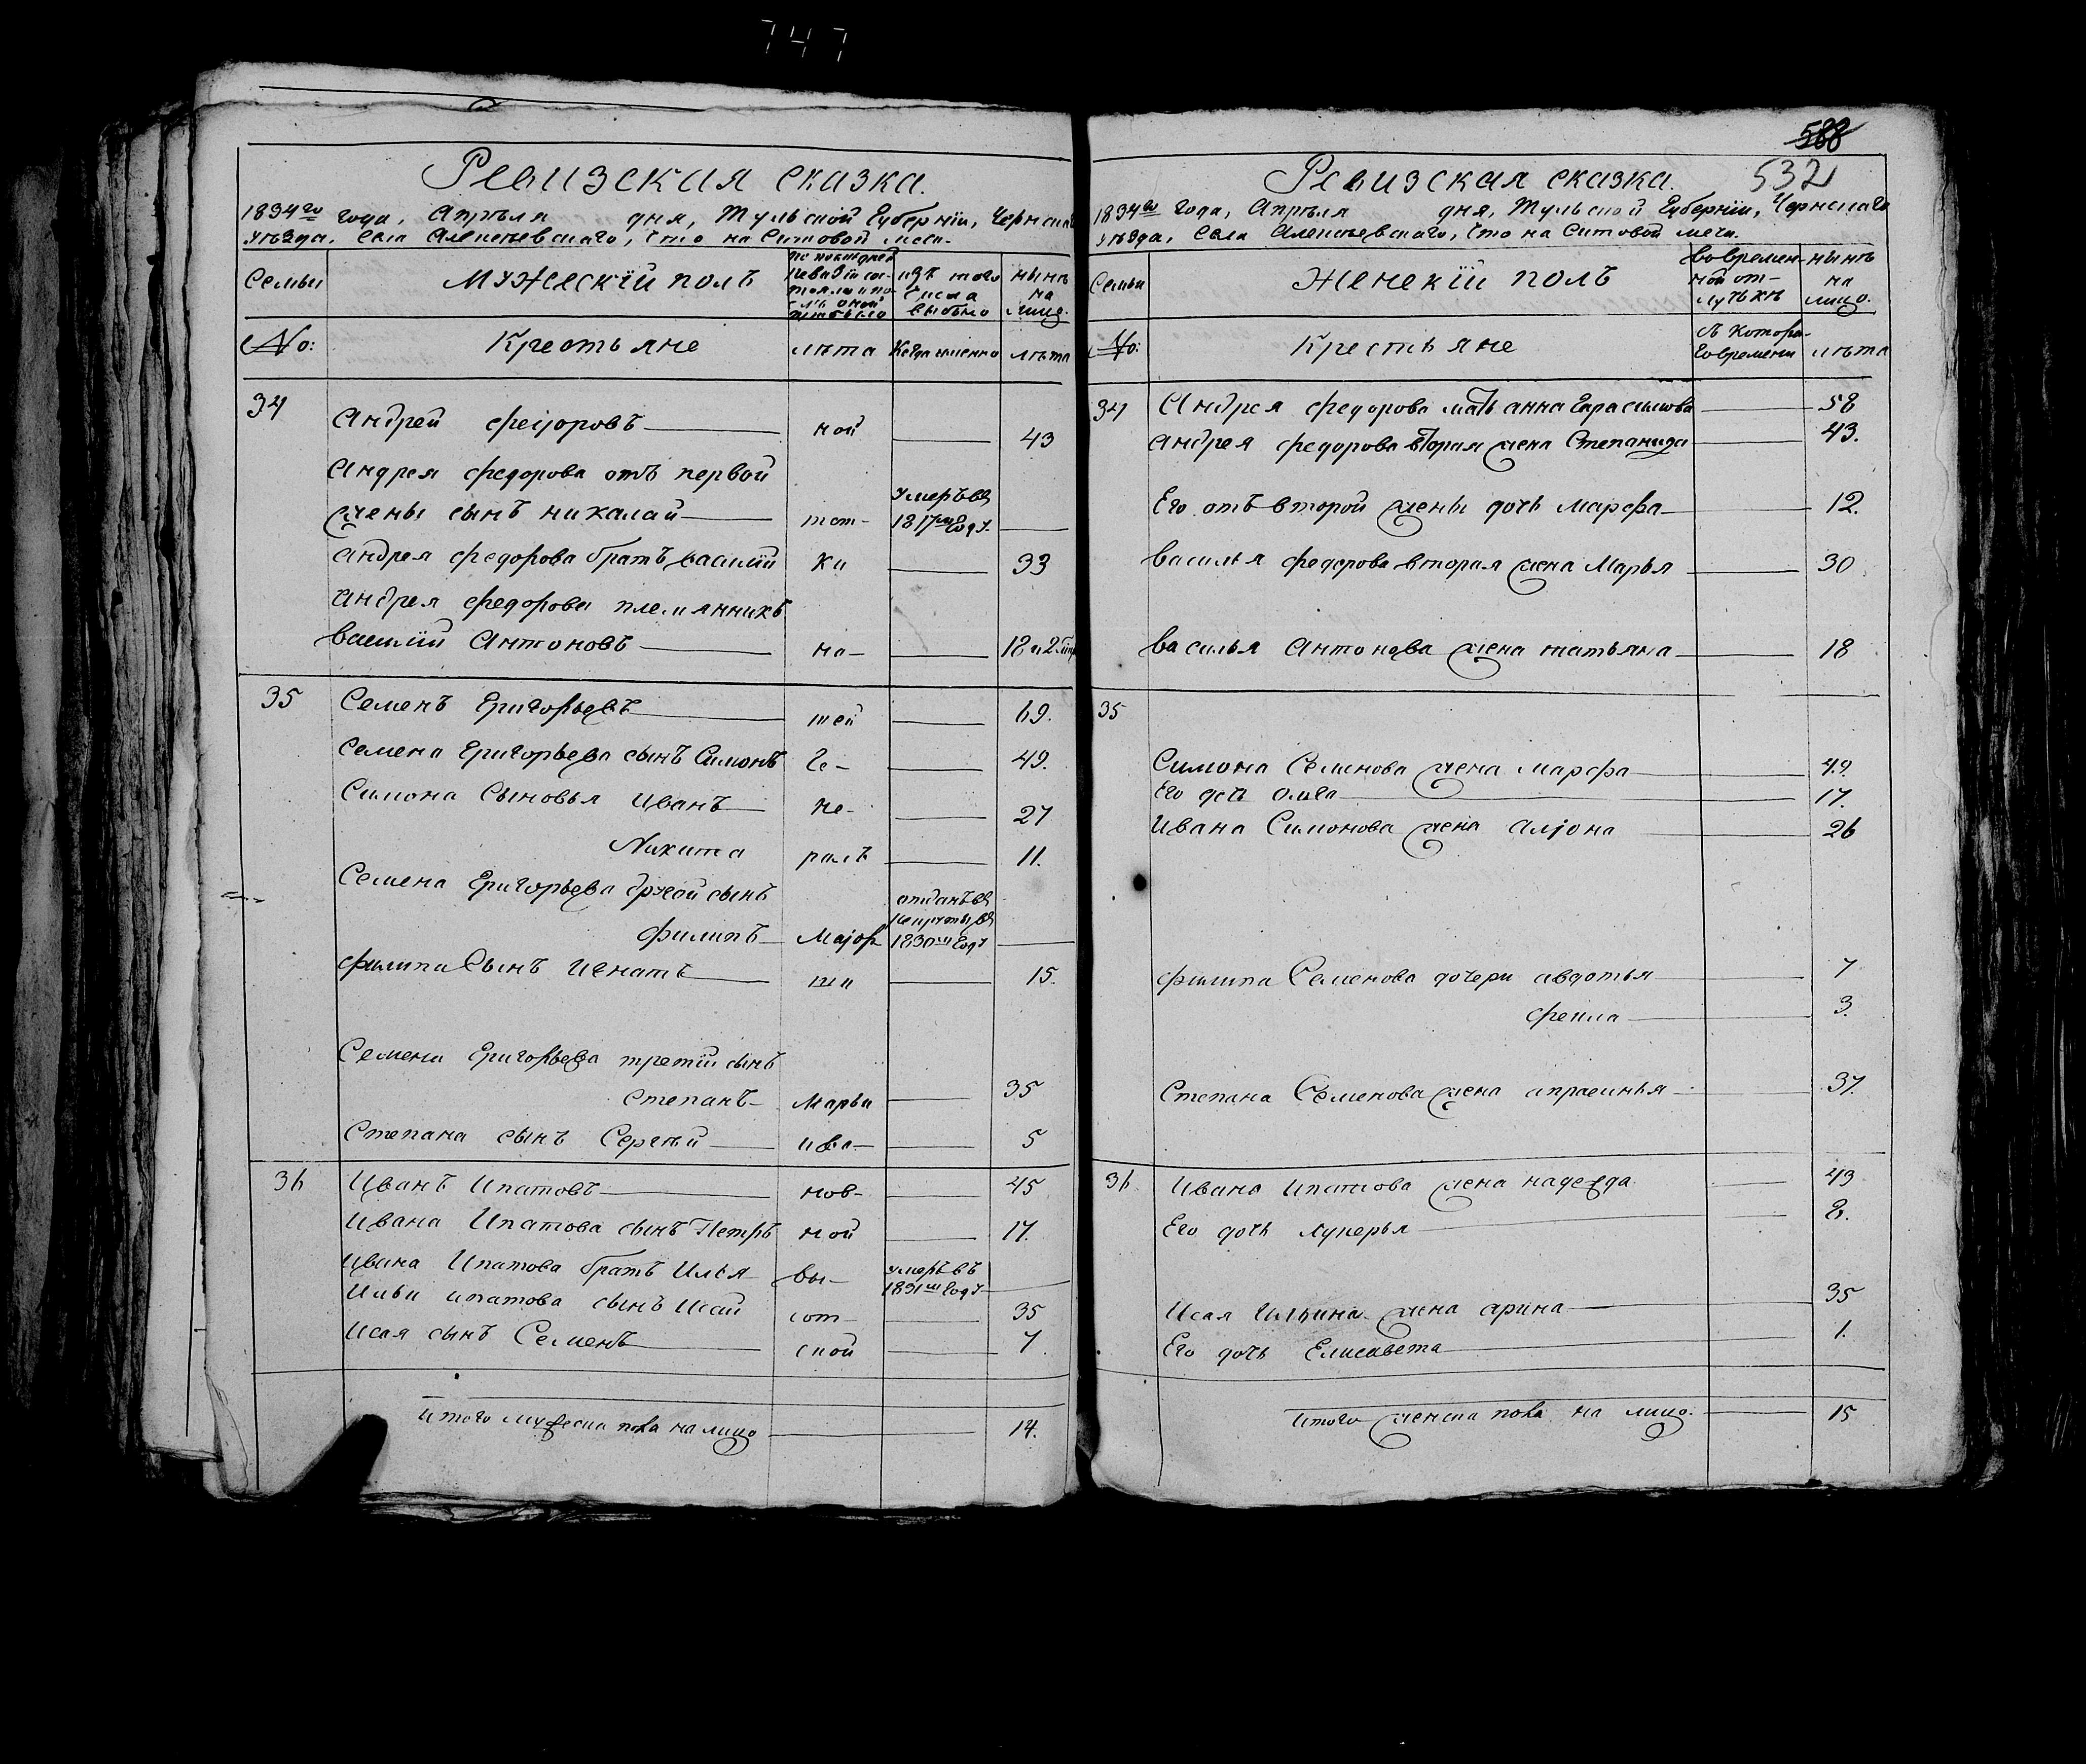 747
Ревизская сказка.
1834го года, Апреля дня, Тульской Губернiи, Чернскаго
уезда, Села Алексеевскаго, что на Ситовой мечи.
Семьи
Мужескiй полъ
по последней
ревизiи сос-
тояло и по-
сле оной
прибыло
изъ того
числа
выбыло
ныне
на
лицо.
No:
Крестьяне
лета
Когда именно
лета
34
Андрей Федоровъ
ной
43
Андрея Федорова отъ первой
жены сынъ Никалай
умеръ въ
1817м году
Андрея Федорова братъ василiй
ки
33
Андрея Федорова племянникъ
василiй Антоновъ
на-
18
35
Семенъ Григорьевъ
шей
69.
Семена Григорьева сынъ Симонъ
Ге-
49.
Симона Сыновья Иванъ
не-
27
Никита
ралъ
11.
Семена Григорьева другой сынъ
Филипъ
Маjор
отданъ въ
рекруты въ
1830м году
Филипа Сынъ Игнатъ
ши
15.
Семена Григорьева третiй сынъ
Степанъ
Марьи
35
Степана сынъ Сергей
ива-
5
36
Иванъ Ипатовъ
нов-
45
Ивана Ипатова сынъ Петръ
ной
17.
Ивана Ипатова братъ Илья
вы-
умеръ въ
1831м году
Ильи ипатова сынъ Исай
сот-
35
Исая сынъ Семенъ
ской
7
Итого мужеска пола на лицо
14.
588
532
Ревизская сказка.
1834го года, Апреля дня, Тульской Губернiи, Чернскаго
уезда, Села Алексеевскаго, что на Ситовой мечи.
Семьи
Женскiй полъ
во времен-
ной от-
лучьке
ныне
на
лицо.
No:
Крестьяне
съ которa-
го времени
лета
34
Андрея Федорова мать анна Гарасимова
58
Андрея Федорова вторая жена Степанида
43.
Его отъ второй жены дочь Марфа
12.
василья Федорова вторая жена Марья
30
василья Антонова жена татьяна
18
35
Симона Семенова жена марфа
49.
Его дочь Ольга
17.
Ивана Симонова жена Алjона
26
Филипа Семенова дочери авдотья
7
Фекла
3.
Степана Семенова жена апрасинья
37.
36
Ивана Ипатова жена надежда
43
Его дочь Лукерья
2.
Исая Ильина жена арина
35
Его дочь Елисавета
1.
Итого женска пола на лицо.
15